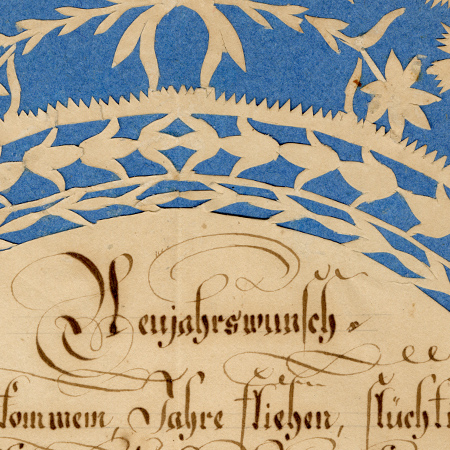 Neujahrswunsch.
kommem, Jahre fliehen, flücht